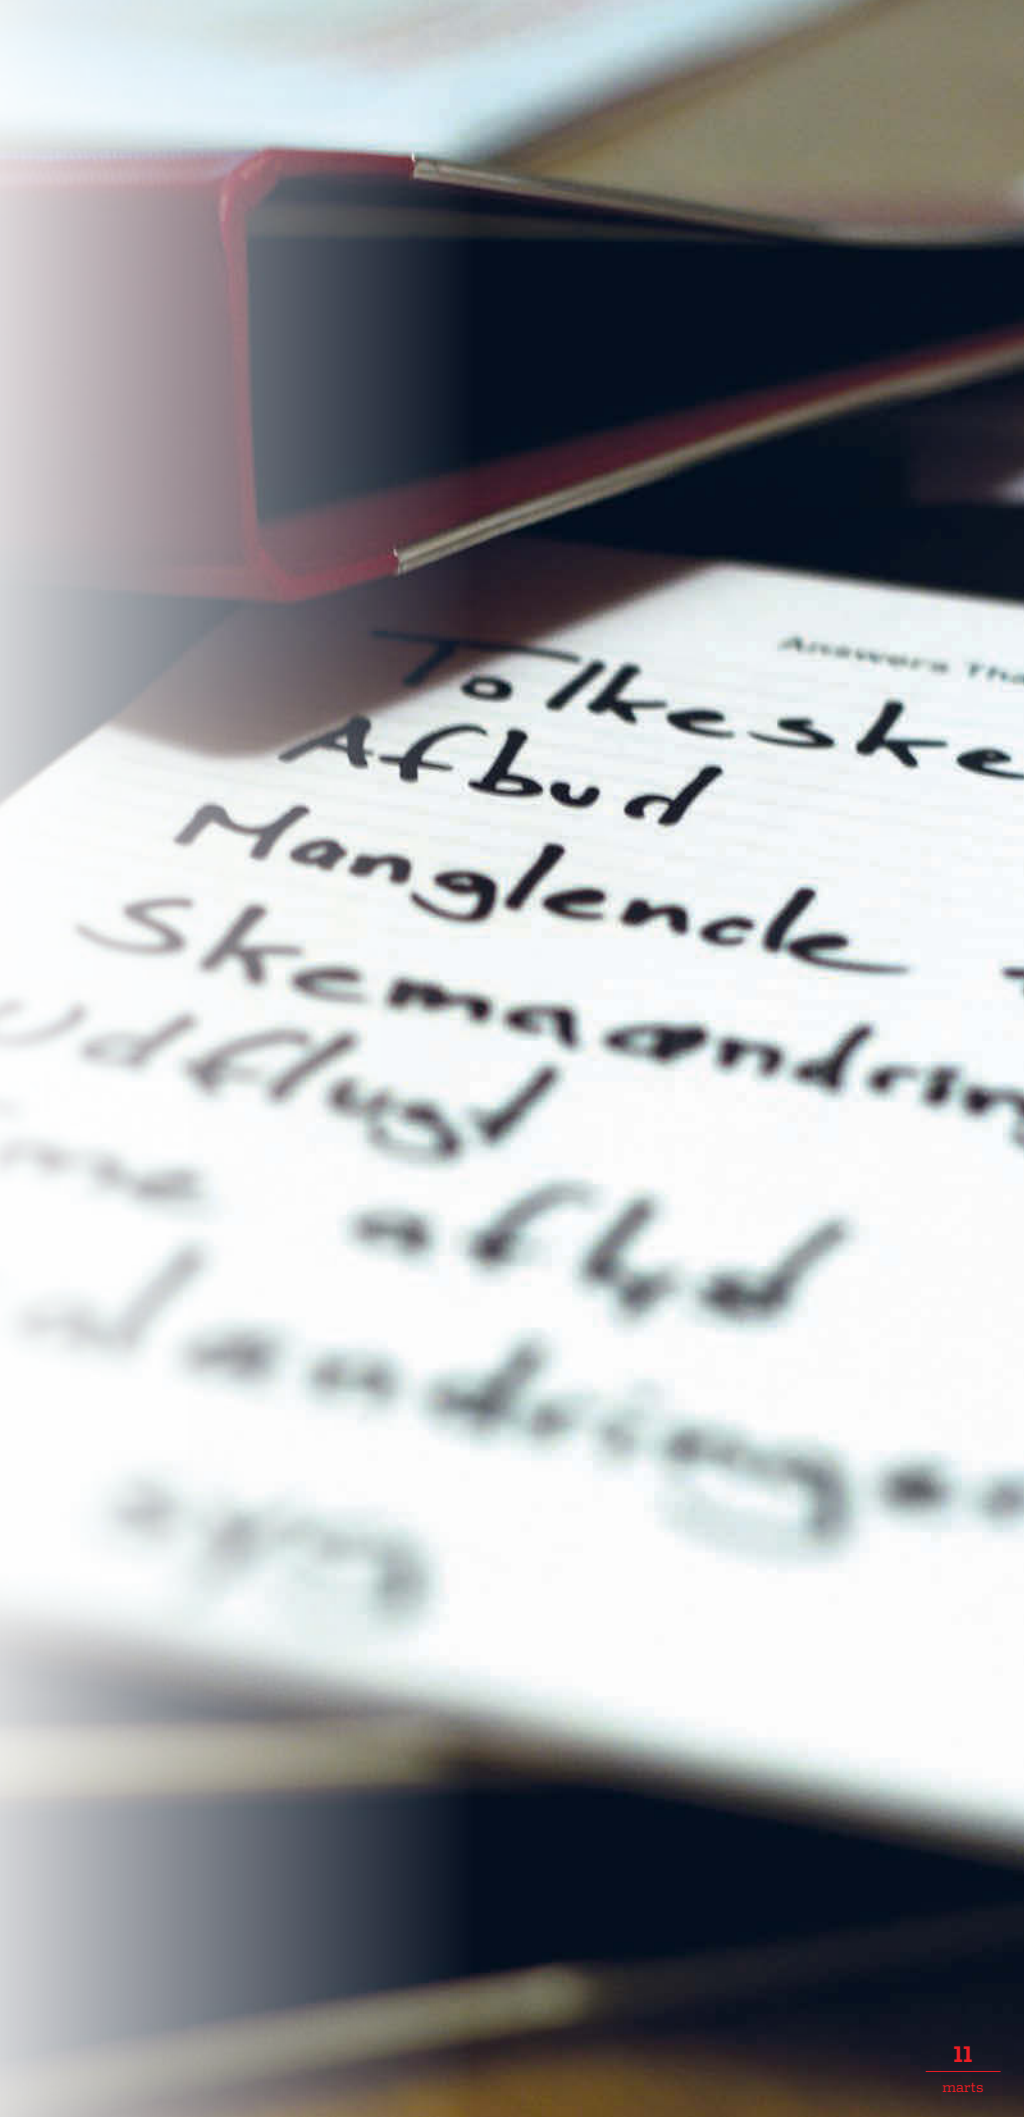 Answers Tha
Tolkeske
Afbud
Manglende
Skemaændring
udflugt
aflyst
ændringer
11
marts